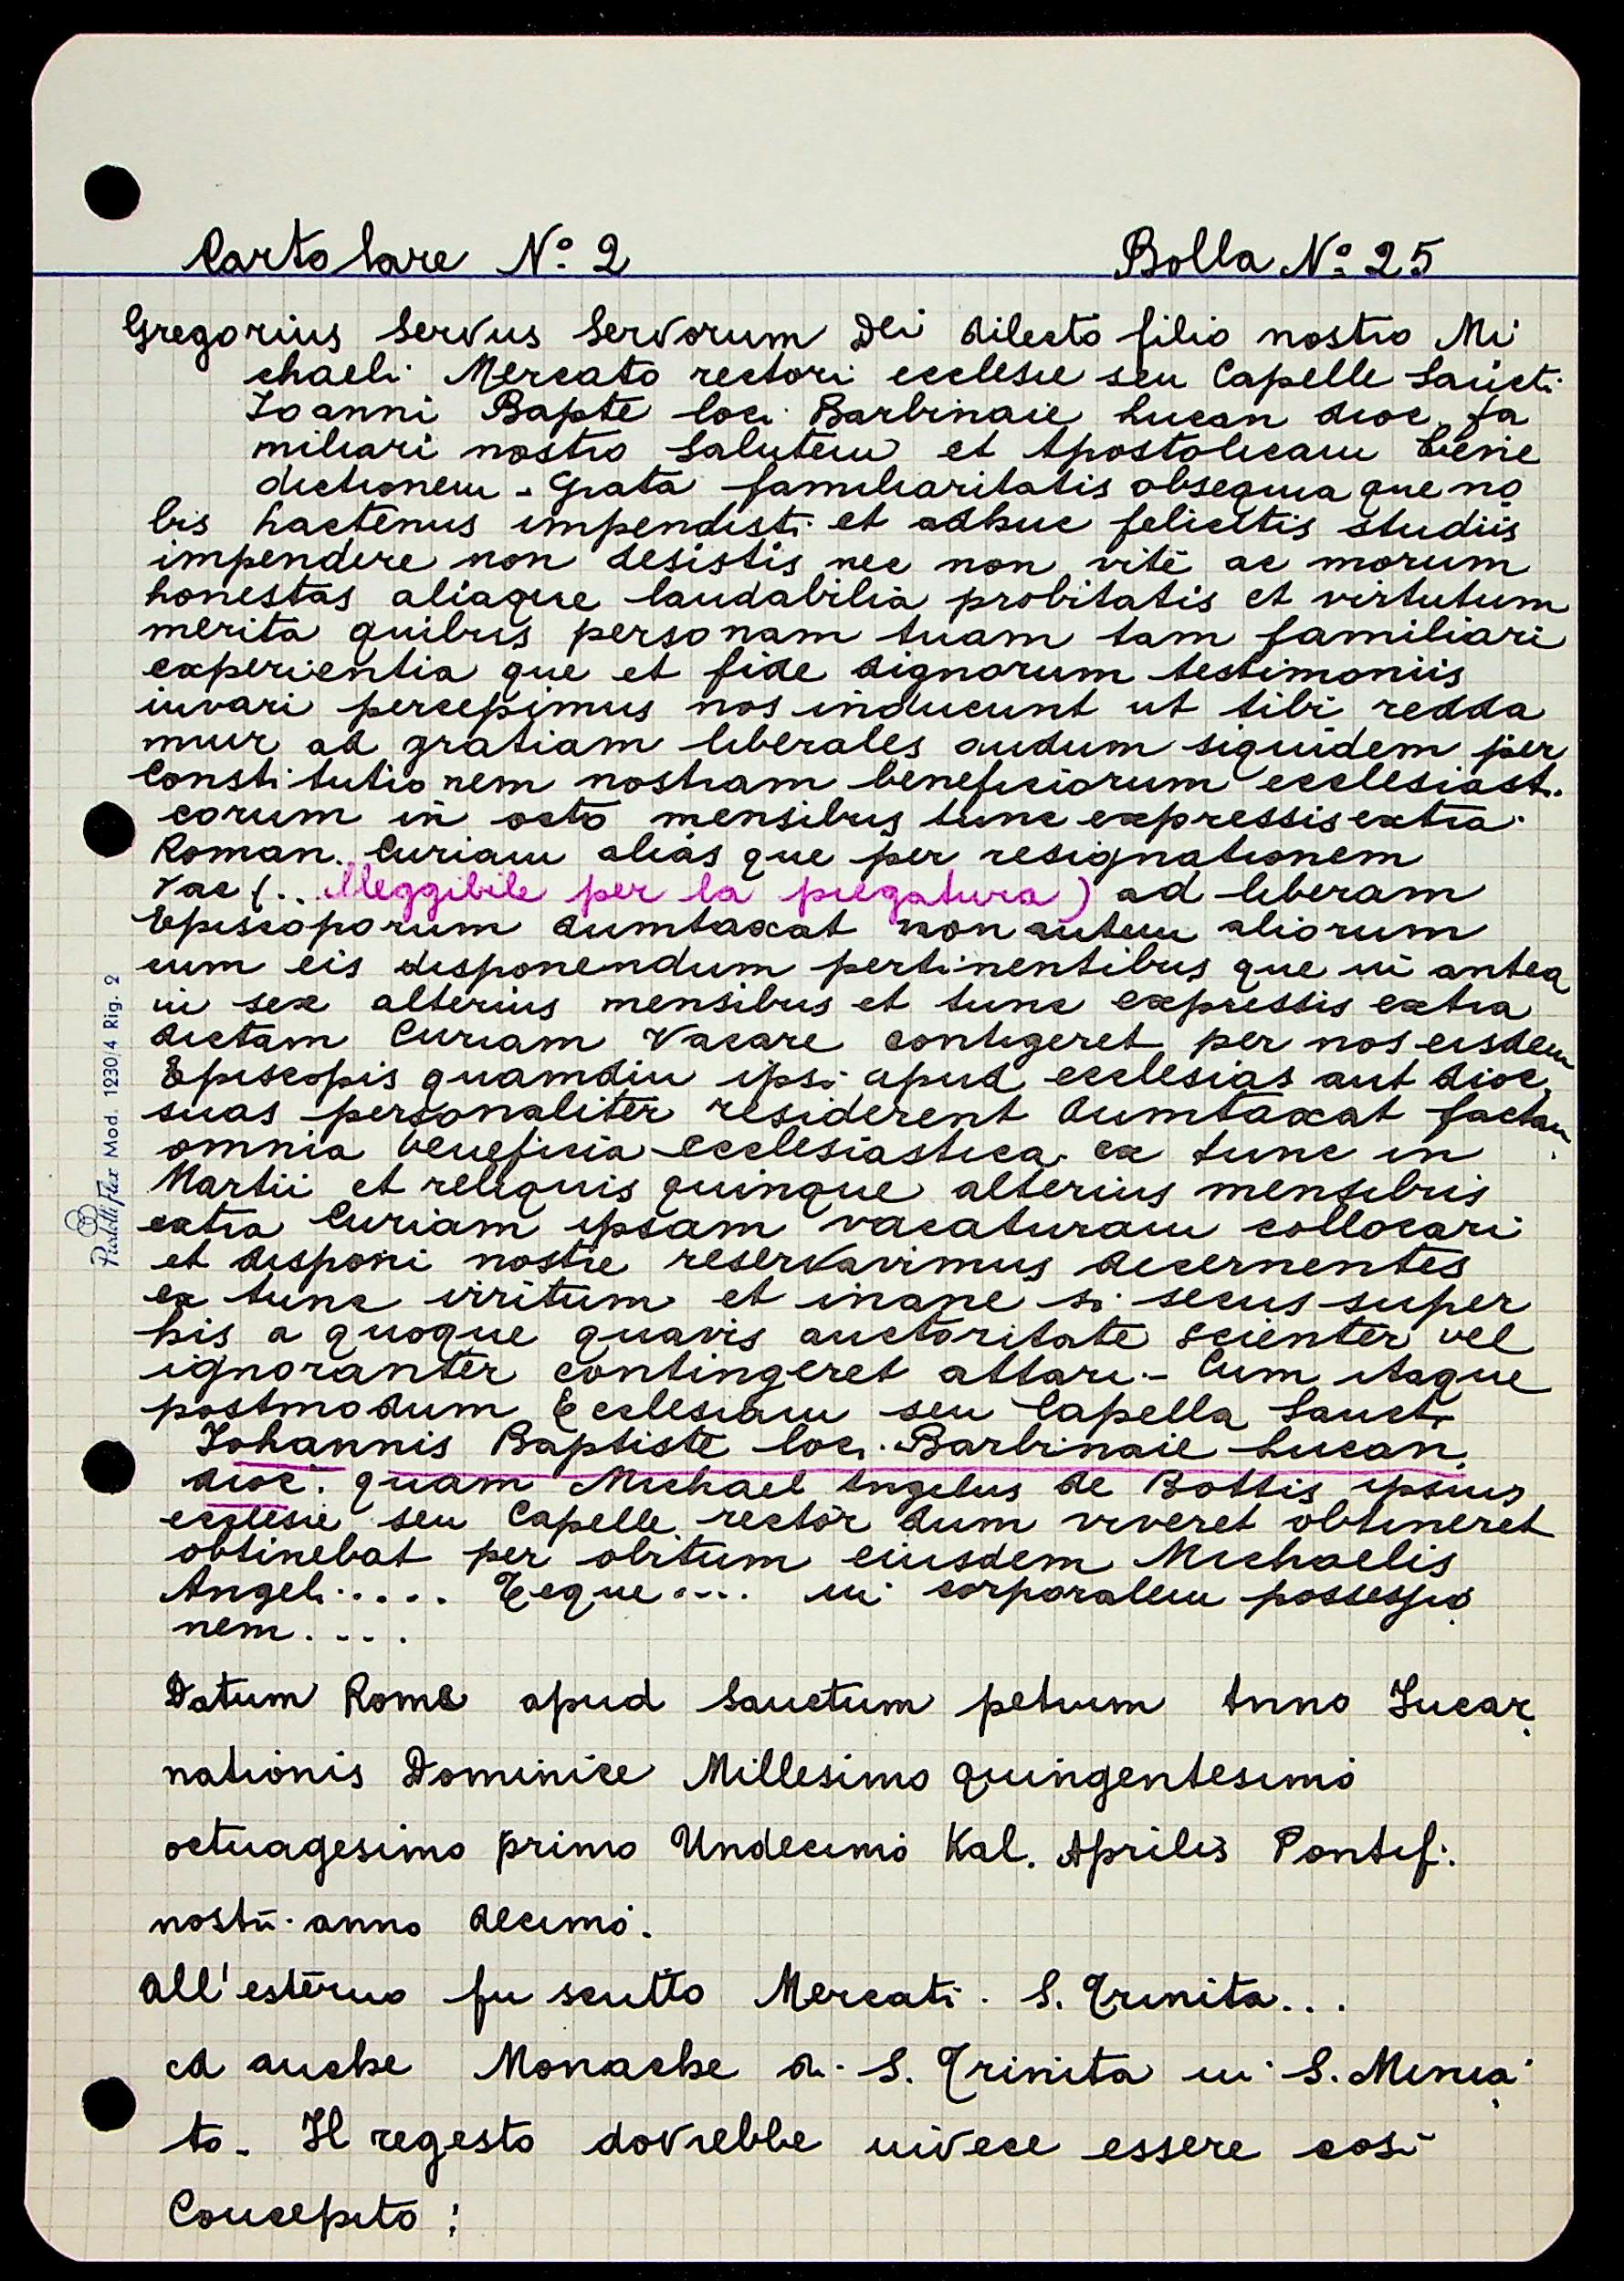 Cartolare N° 2 Bolla N° 25
Gregorius Servus Servorum Dei dilecto filio nostro Mi
chaeli Mercato rectori ecclesie seu Capelle Sancti
Joanni Bapte loci Barbinaie Lucan dioc. fa
miliari nostro Salutem et Apostolicam bene
dictionem - Grata familiaritatis obsequia que no
bis hactenus impendisti et adhuc felicitis studiis
impendere non desistis nec non vite ac morum
honestas aliaque laudabilia probitatis et virtutum
merita quibus personam tuam tam familiari
experientia que et fide dignorum testimoniis
iuvari percepimus nos inducunt ut tibi redda
mur ad gratiam liberales dudum siquidem per
Constitutionem nostram beneficiorum ecclesiasti
corum in octo mensibus tunc expressis extra
Roman. Curiam alias que per resignationem
Vac (.. illeggibile per la piegatura) ad liberam
Episcoporum dumtaxat non autem aliorum
cum eis disponendum pertinentibus que in antea
in sex alterius mensibus et tunc expressis extra
dictam Curiam Vacare contigeret per nos eisdem
Episcopis quamdiu ipsi apud ecclesias aut dioc.
suas personaliter residerent dumtaxat factam
omnia beneficia ecclesiastica ex tunc in
Martii et reliquis quinque alterius mensibus
extra Curiam ipsam vacaturam collocari
et disponi nostre reservavimus decernentes
ex tunc irritum et inane si secus super
his a quoque quavis auctoritate scienter vel
ignoranter contingeret attari.- Cum itaque
postmodum Ecclesiam seu Capella Sancti
Johannis Baptiste loci Barbinaie Lucan.
dioc. quam Michael Angelus de Bottis ipsius
ecclesie seu Capelle rector dum viveret obtineret
obtinebat per obitum eiusdem Michaelis
Angeli..... Teque.... in corporalem possessio
nem....
Datum Rome apud Sanctum petrum Anno Incar
nationis Dominice Millesimo quingentesimo
octuagesimo primo Undecimo Kal. Aprilis Pontif.
nostri anno decimo.
All'esterno fu scritto Mercati. S. Trinita...
ed anche Monache di S. Trinita in S. Minia
to. Il regesto dovrebbe invece essere così
Concepito:
Pustelliflex Mod. 1230/4 Rig. 2